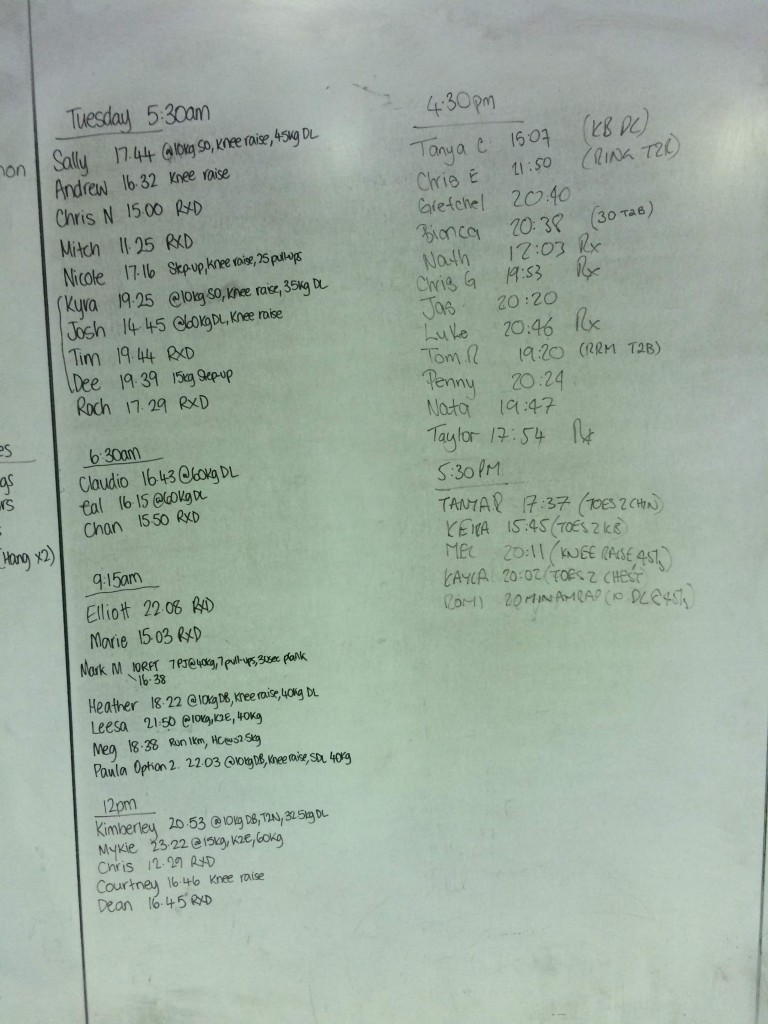 Tuesday 5:30am
Sally 17.44 @10kg SO, Knee raise, 45kg DL
Andrew 16.32 Knee raise
Chris N 15.00 RXD
Mitch 11.25 RXD
Nicole 17.16 Step-up, Knee raise, 25 pull-ups
Kyra 19.25 @10kg SO, Knee raise, 35kg DL
Josh 14.45 @60kg DL, Knee raise
Tim 19.44 RXD
Dee 19.39 15kg Step-up
Roch 17.29 RXD
6:30am
Claudio 16.43 @60kg DL
Cal 16.15 @60kg DL
Chan 15.50 RXD
9:15am
Elliott 22.08 RXD
Marie 15.03 RXD
Mark M 10RFT 7PJ@40kg, 7pull-ups, 30sec plank
16.38
Heather 18.22 @10kg DB, Knee raise, 40kg DL
Leesa 21.50 @10kg, K2E, 40kg
Meg 18.38 Run 1km, HC@52.5kg
Paula Option 2. 22.03 @10kg DB, Knee raise, SDL 40kg
12pm
Kimberley 20.53 @10kg DB, T2N, 32.5kg DL
Mykie 23.22 @15kg, K2E, 60kg
Chris 12.29 RXD
Courtney 16.46 Knee raise
Dean 16.45 RXD
4:30pm
Tanya C 15:07 (KB DL)
Chris E 21:50 (RING T2R)
Gretchel 20:40
Bianca 20:38 (30 T2B)
Nath 12:03 Rx
Chris G 19:53 Rx
Jas 20:20
Luke 20:46 Rx
Tom R 19:20 (RRM T2B)
Penny 20:24
Nata 19:47
Taylor 17:54 Rx
5:30PM
TANYA R 17:37 (TOES 2 CHIN)
KEIRA 15:45 (TOES 2 KB)
MEL 20:11 (KNEE RAISE 45kg)
KAYLA 20:02 (TOES 2 CHEST)
ROMI 20MIN AMRAP (10 DL@45kg)
non
es
gs
rs
(Hang x2)